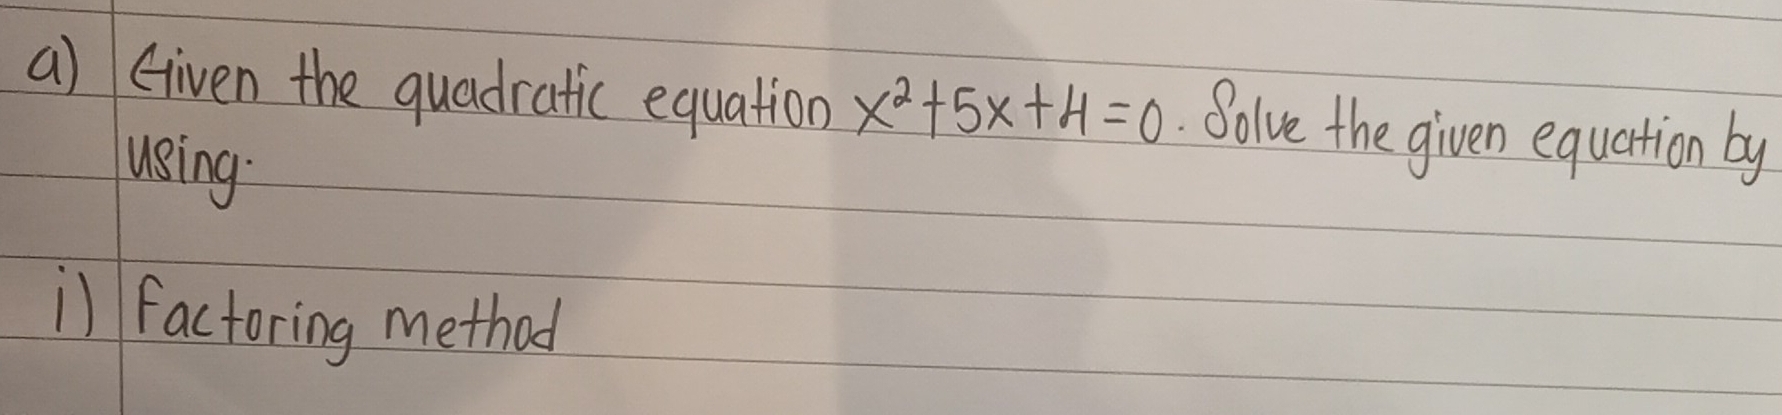 a) Given the quadratic equation x²+5x+4=0. Solve the given equation by
using.
i) Factoring method